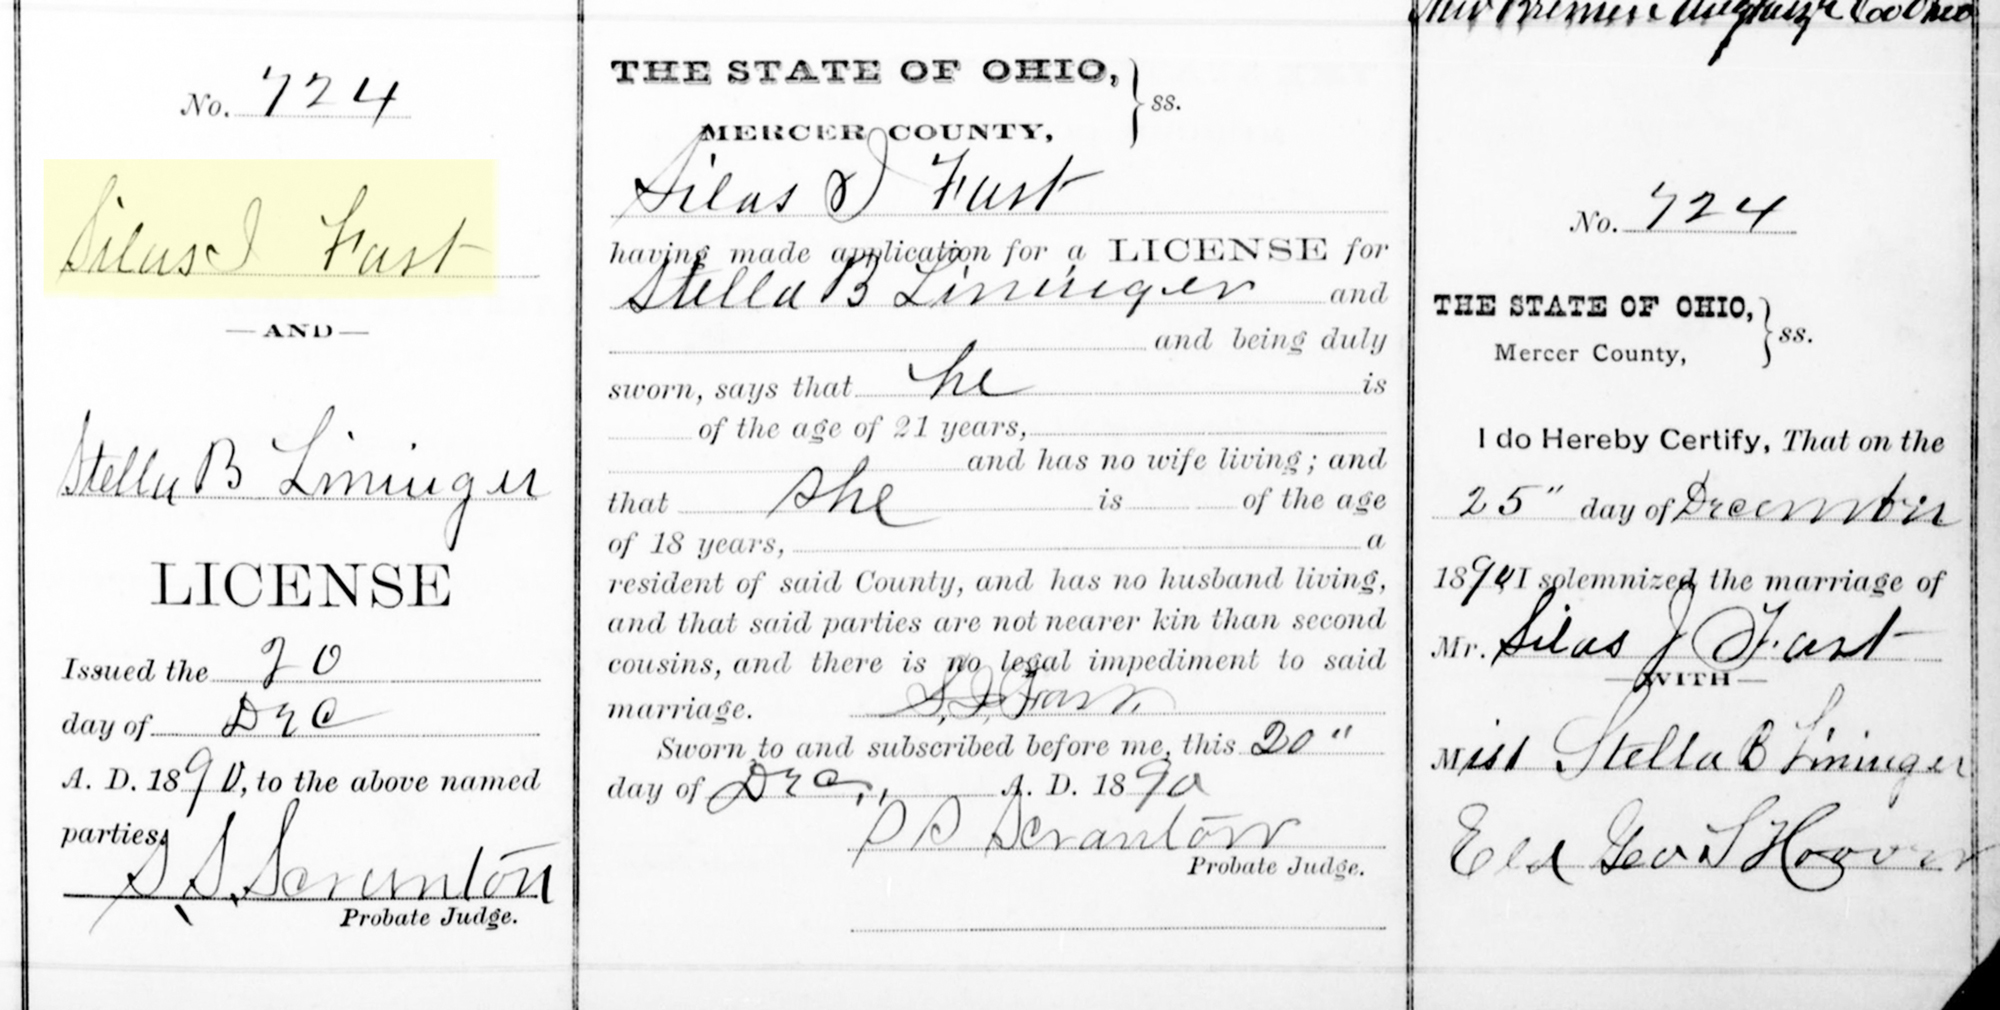 No. 724
Silas I Fast
— AND —
Stella B Lininger
LICENSE
Issued the 20
day of Dec
A. D. 1890, to the above named
parties.
S. S. Scranton
Probate Judge.
THE STATE OF OHIO,
MERCER COUNTY, } ss.
Silas I Fast
having made application for a LICENSE for
Stella B Lininger and
and being duly
sworn, says that he is
of the age of 21 years,
and has no wife living; and
that she is of the age
of 18 years, a
resident of said County, and has no husband living,
and that said parties are not nearer kin than second
cousins, and there is no legal impediment to said
marriage. S. I. Fast
Sworn to and subscribed before me, this 20"
day of Dec., A. D. 1890
S S Scranton
Probate Judge.
New Bremen Auglaize Co Ohio
No. 724
THE STATE OF OHIO,
Mercer County, } ss.
I do Hereby Certify, That on the
25" day of December
1890 I solemnized the marriage of
Mr. Silas J Fast
— WITH —
Miss Stella B Lininger
Eld Geo S Hoover